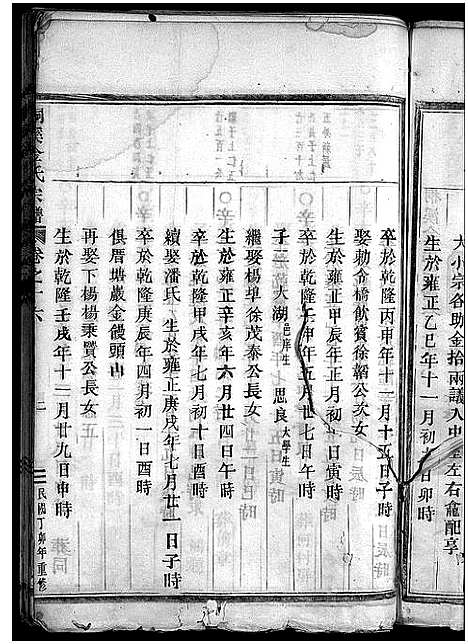 大小宗各助金拾兩議入中堂左右龕配享
生於雍正乙巳年十一月初九日卯時
卒於乾隆丙申年十二月十五日子時
娶勅令橋飲賓徐韜公次女
生於雍正甲辰年正月初一日寅時
卒於乾隆壬申年五月廿七日午時
子二 大湖邑庠生 思良大學生
繼娶楊埠徐茂泰公長女
生於雍正辛亥年六月廿四日午時
卒於乾隆甲戌年七月初十日酉時
續娶潘氏 生於雍正庚戌年七月廿一日子時
卒於乾隆庚辰年四月初一日酉時
俱厝塘巖金饅頭山
再娶下楊楊乘贒公長女
生於乾隆壬戌年十二月廿九日申時
金氏宗譜 卷之十六 上 民國丁卯年重修